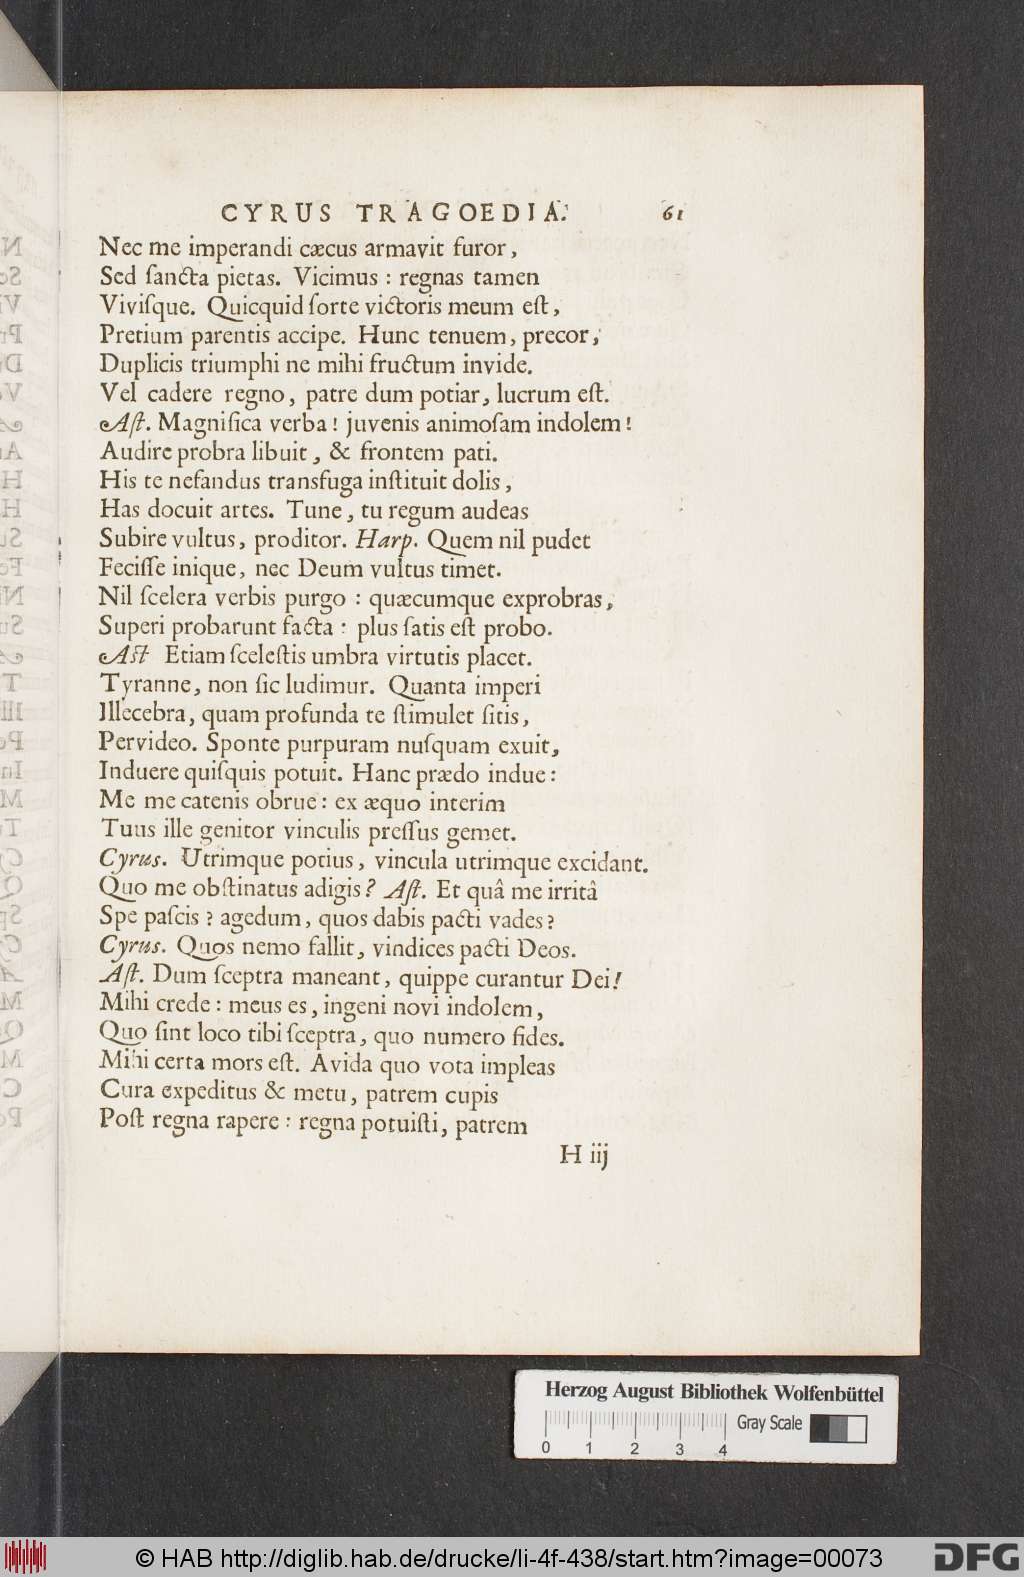 CYRUS TRAGOEDIA. 61
Nec me imperandi cæcus armavit furor,
Sed ſancta pietas. Vicimus : regnas tamen
Viviſque. Quicquid ſorte victoris meum eſt,
Pretium parentis accipe. Hunc tenuem, precor,
Duplicis triumphi ne mihi fructum invide.
Vel cadere regno, patre dum potiar, lucrum eſt.
Aſt. Magnifica verba! juvenis animoſam indolem!
Audire probra libuit, & frontem pati.
His te nefandus transfuga inſtituit dolis,
Has docuit artes. Tune, tu regum audeas
Subire vultus, proditor. Harp. Quem nil pudet
Feciſſe inique, nec Deum vultus timet.
Nil ſcelera verbis purgo : quæcumque exprobras,
Superi probarunt facta : plus ſatis eſt probo.
Aſt Etiam ſceleſtis umbra virtutis placet.
Tyranne, non ſic ludimur. Quanta imperi
Illecebra, quam profunda te ſtimulet ſitis,
Pervideo. Sponte purpuram nuſquam exuit,
Induere quiſquis potuit. Hanc prædo indue :
Me me catenis obrue : ex æquo interim
Tuus ille genitor vinculis preſſus gemet.
Cyrus. Utrimque potius, vincula utrimque excidant.
Quo me obſtinatus adigis? Aſt. Et quâ me irritâ
Spe paſcis ? agedum, quos dabis pacti vades?
Cyrus. Quos nemo fallit, vindices pacti Deos.
Aſt. Dum ſceptra maneant, quippe curantur Dei!
Mihi crede : meus es, ingeni novi indolem,
Quo ſint loco tibi ſceptra, quo numero fides.
Mihi certa mors eſt. Avida quo vota impleas
Cura expeditus & metu, patrem cupis
Poſt regna rapere : regna potuiſti, patrem
H iij
Herzog August Bibliothek Wolfenbüttel
Gray Scale
0 1 2 3 4
© HAB http://diglib.hab.de/drucke/li-4f-438/start.htm?image=00073
DFG